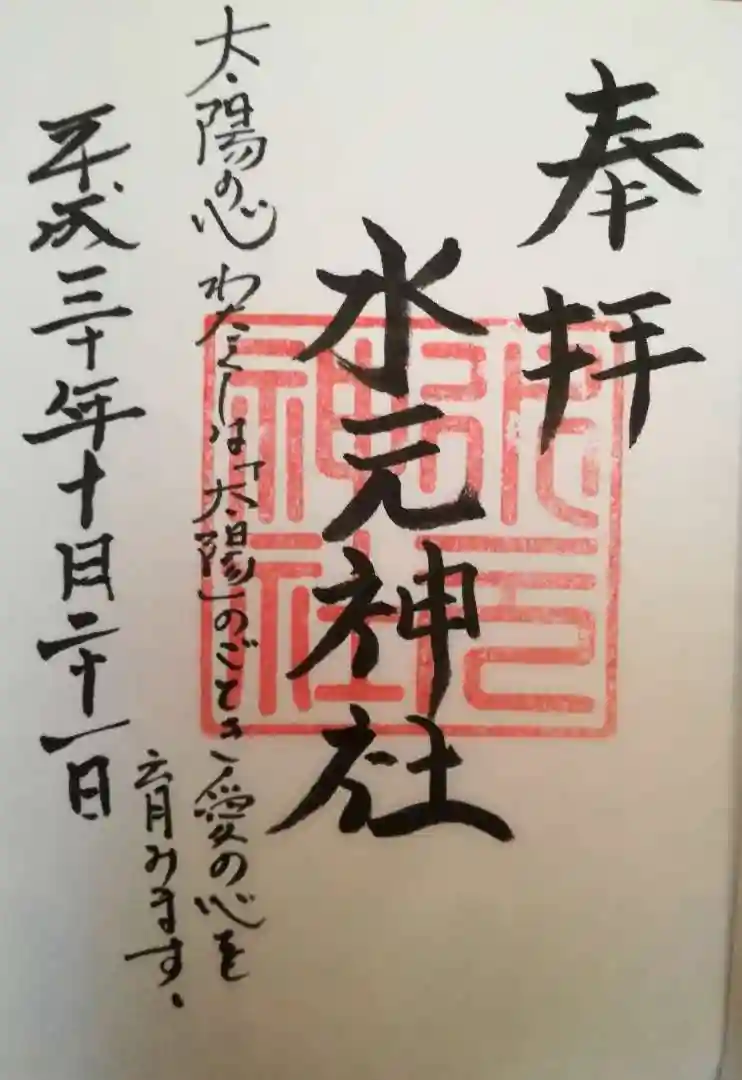 奉拝
水元神社
水元神社
太陽の心 わたくしは「太陽」のごとき、愛の心を
育みます。
平成三十年十月二十一日